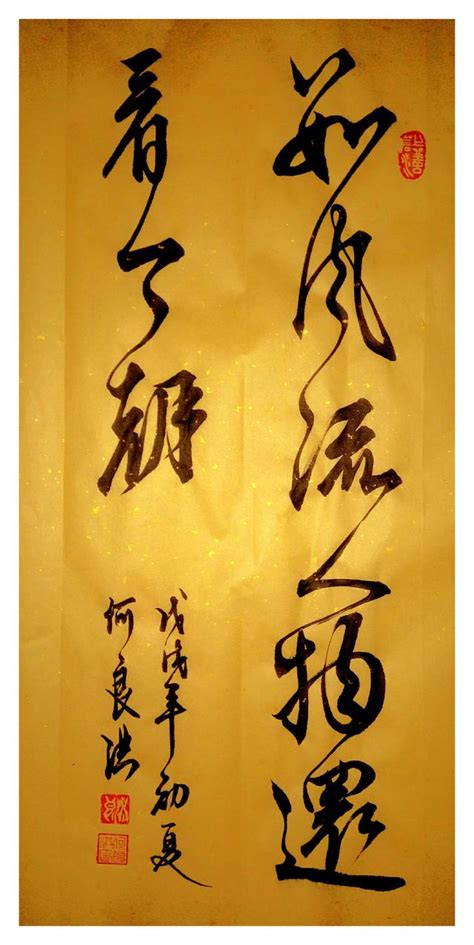 数风流人物還
看今朝
戊戌年初夏
何良洪